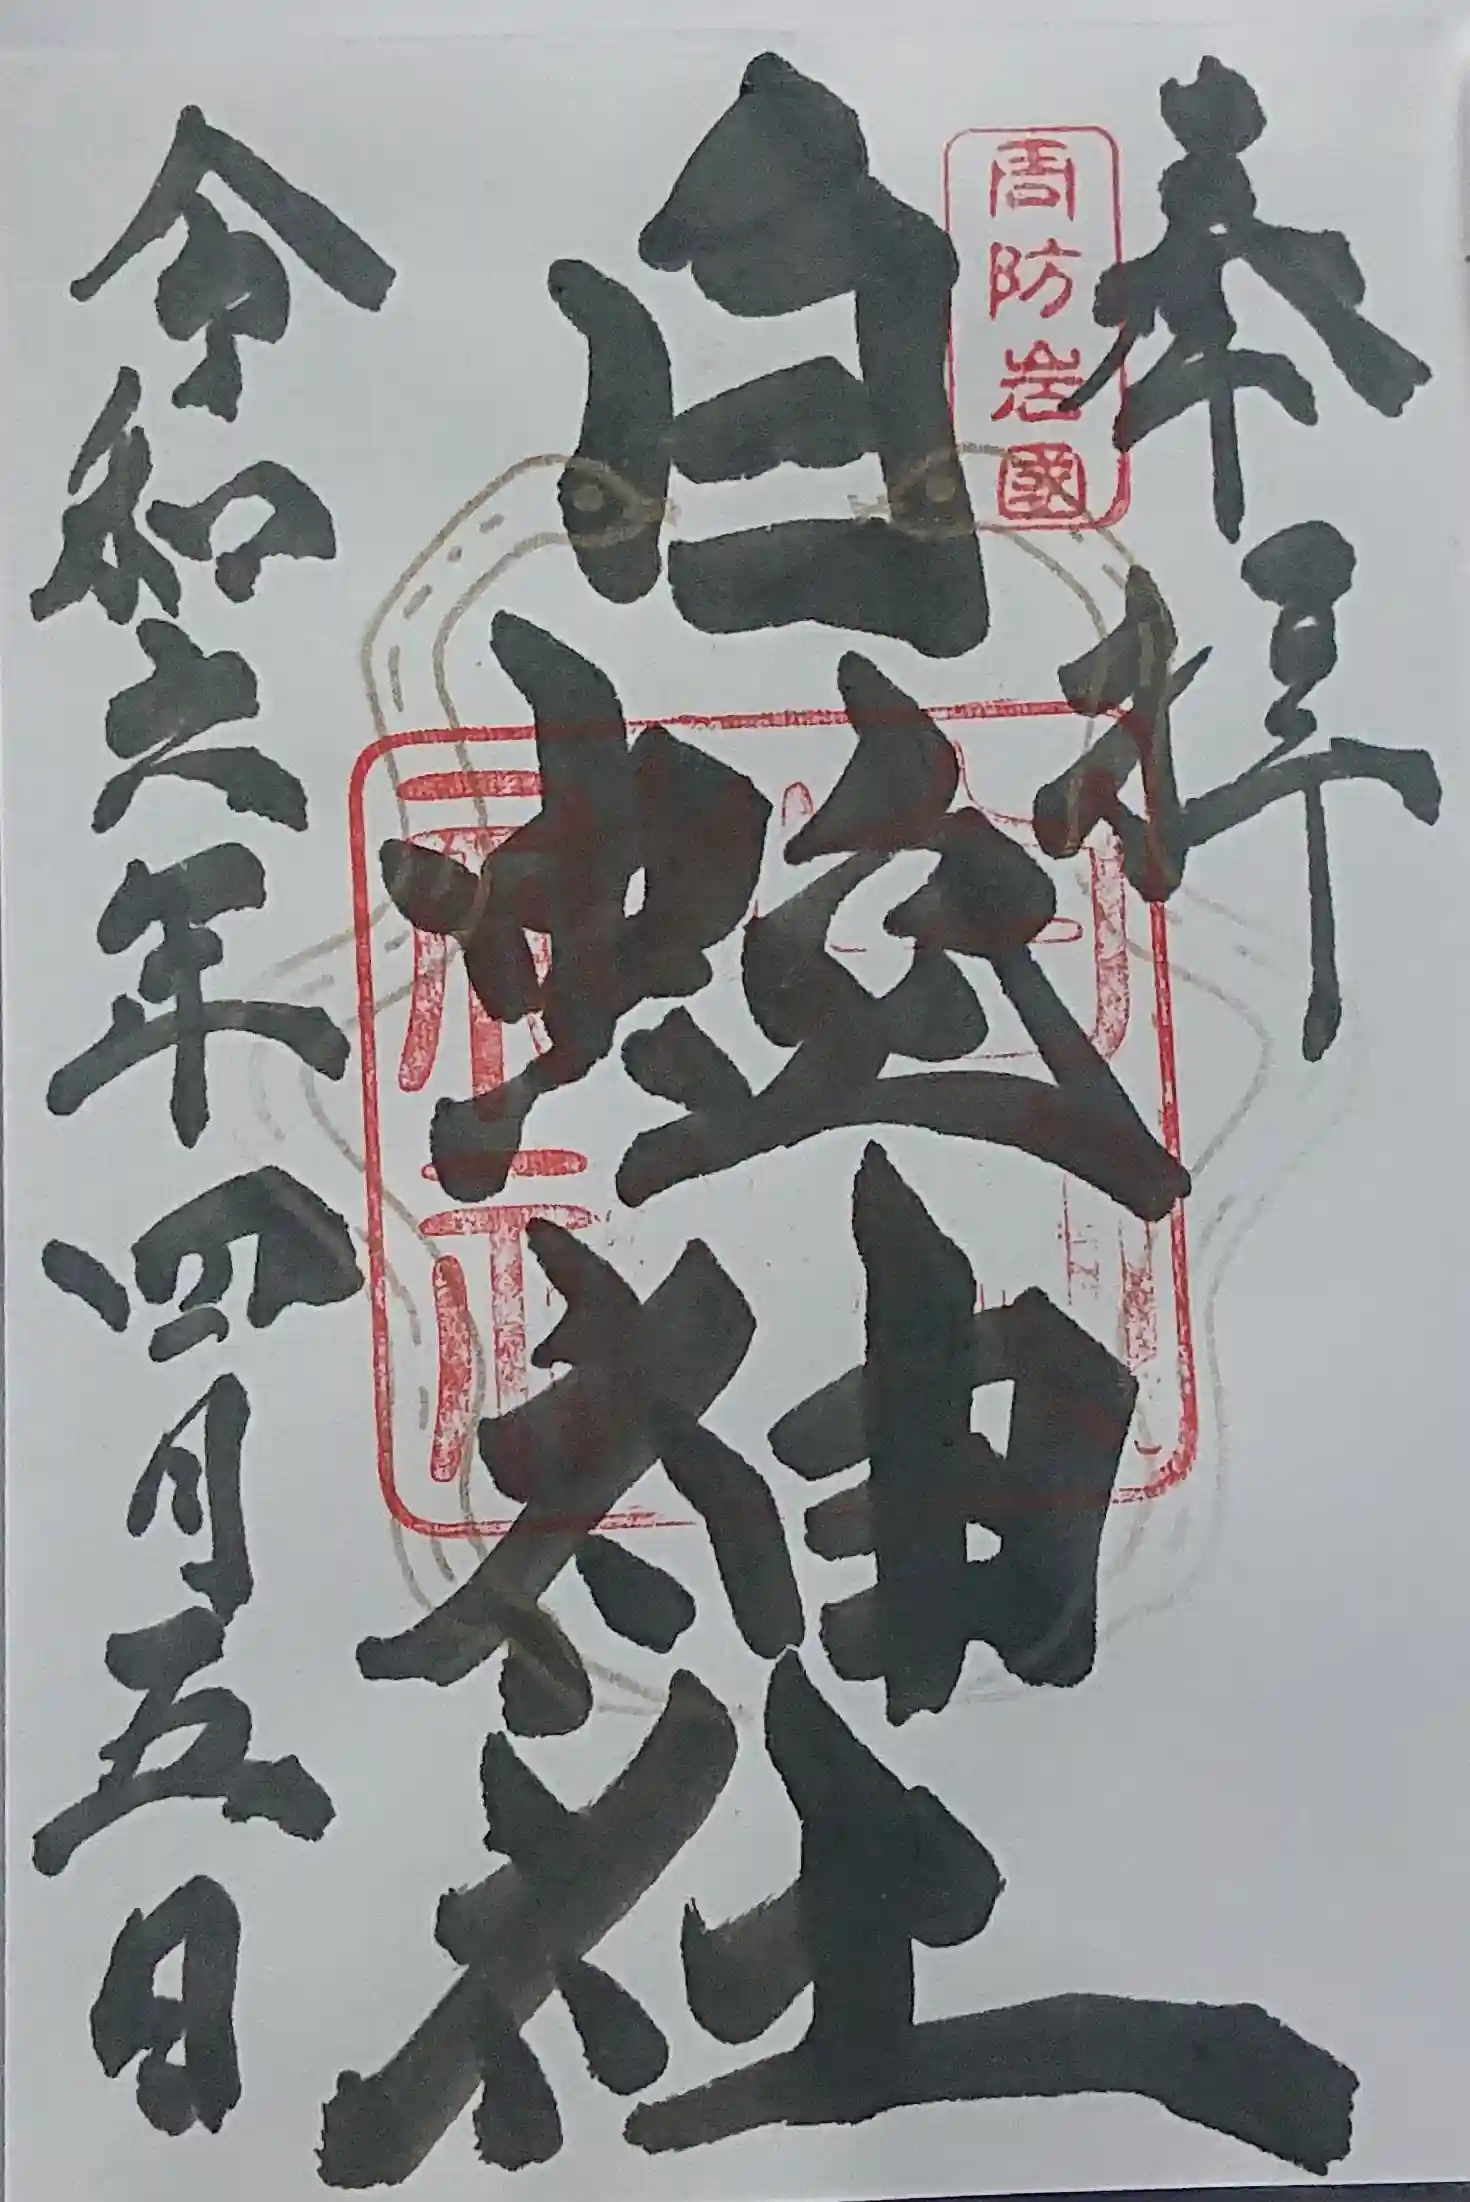 奉拝
周防岩國
白蛇神社
令和六年四月五日